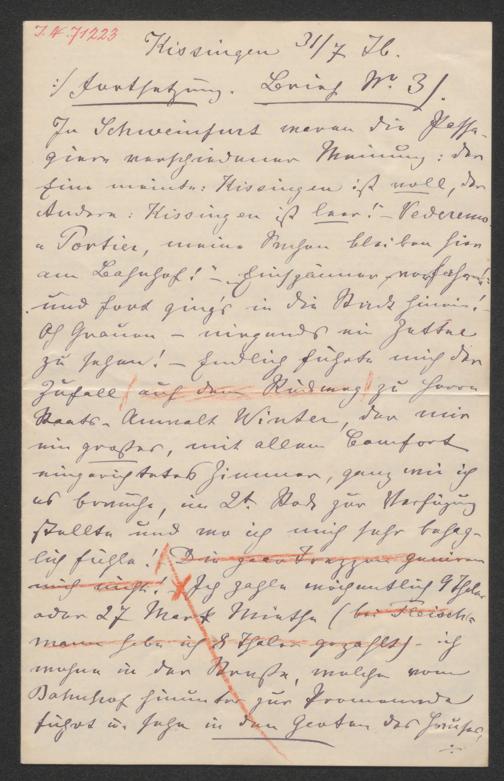 I.N. 71223
Kissingen 31/7 76.
:/ Fortsetzung. Brief No 3/.
In Schweinfurt waren die Passa-
giere verschiedener Meinung: der
Eine meinte: Kissingen ist voll, der
Andere: Kissingen ist leer! – Vederemo
„Portier, meine Sachen bleiben hier
am Bahnhof!" – Einspänner, vorfahren!
und fort ging's in die Stadt hinein!
Oh Grauen – nirgends ein Zettel
zu sehen! – Endlich führte mich der
Zufall (auf dem Rückweg) zu Herrn
Staats-Anwalt Winter, der mir
ein großes, mit allem Comfort
eingerichtetes Zimmer, ganz wie ich
es brauche, im 2t. Stock zur Verfügung
stellte und wo ich mich sehr behag-
lich fühle! Die zwei Treppen geniren
mich nicht! Ich zahle wöchentlich 9 Thaler
oder 27 Mark Miethe (bei Fleisch-
mann habe ich 8 Thaler gezahlt) – ich
wohne in der Straße, welche vom
Bahnhof hinunter zur Promenade
führt u. sehe in den Garten des Hauses,